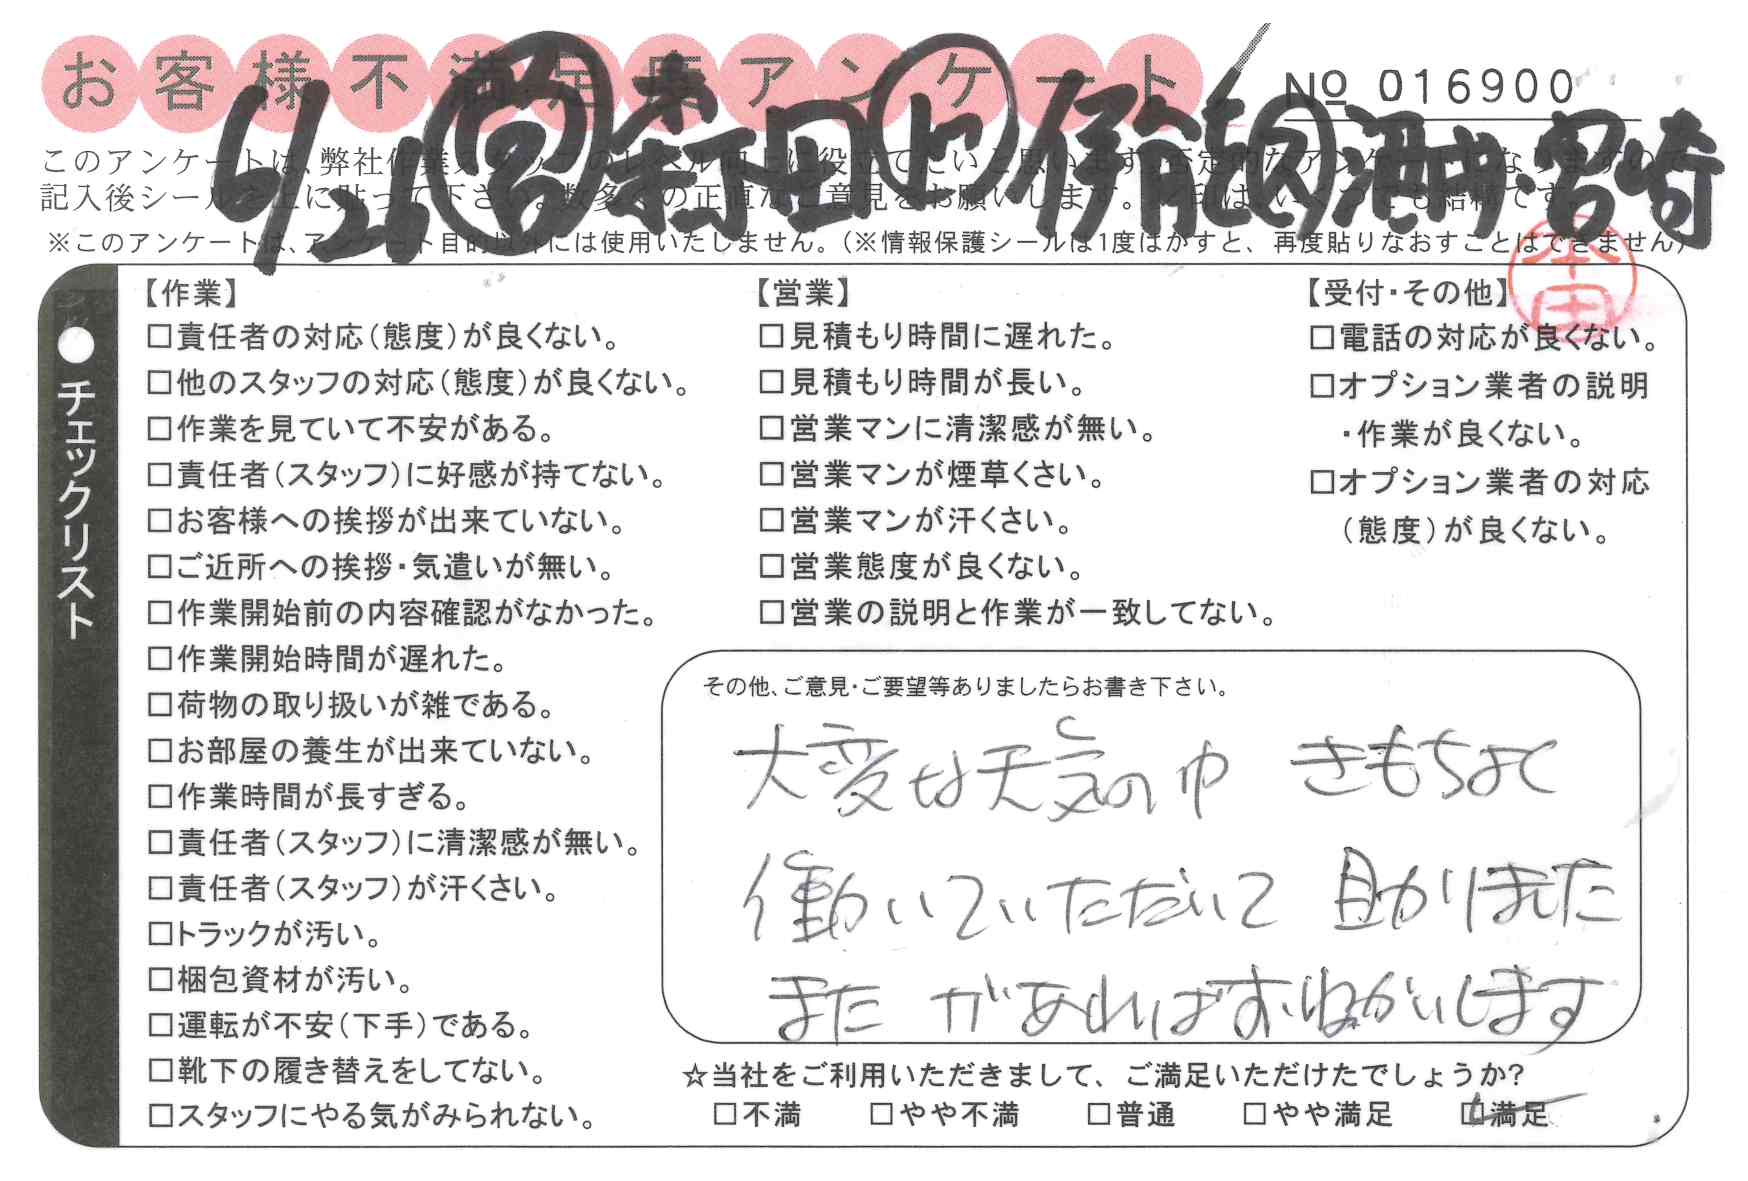 お客様不満足度アンケート
№ 016900
6/21 営 森田 伊能 酒井・宮崎
このアンケートは、弊社作業スタッフのレベル向上に役立てたいと思います。否定的なアンケートになりますので
記入後シールを上に貼って下さい。数多くの正直なご意見をお願いします。 印は、いくつでも結構です。
※このアンケートは、アンケート目的以外には使用いたしません。(※情報保護シールは1度はがすと、再度貼りなおすことはできません)
本田
●チェックリスト
【作業】
□責任者の対応(態度)が良くない。
□他のスタッフの対応(態度)が良くない。
□作業を見ていて不安がある。
□責任者(スタッフ)に好感が持てない。
□お客様への挨拶が出来ていない。
□ご近所への挨拶・気遣いが無い。
□作業開始前の内容確認がなかった。
□作業開始時間が遅れた。
□荷物の取り扱いが雑である。
□お部屋の養生が出来ていない。
□作業時間が長すぎる。
□責任者(スタッフ)に清潔感が無い。
□責任者(スタッフ)が汗くさい。
□トラックが汚い。
□梱包資材が汚い。
□運転が不安(下手)である。
□靴下の履き替えをしてない。
□スタッフにやる気がみられない。
【営業】
□見積もり時間に遅れた。
□見積もり時間が長い。
□営業マンに清潔感が無い。
□営業マンが煙草くさい。
□営業マンが汗くさい。
□営業態度が良くない。
□営業の説明と作業が一致してない。
【受付・その他】
□電話の対応が良くない。
□オプション業者の説明
・作業が良くない。
□オプション業者の対応
(態度)が良くない。
その他、ご意見・ご要望等ありましたらお書き下さい。
大変な天気の中 きもちよく
働いていただいて 助かりました
また があればおねがいします
☆当社をご利用いただきまして、ご満足いただけたでしょうか?
□不満 □やや不満 □普通 □やや満足 □満足